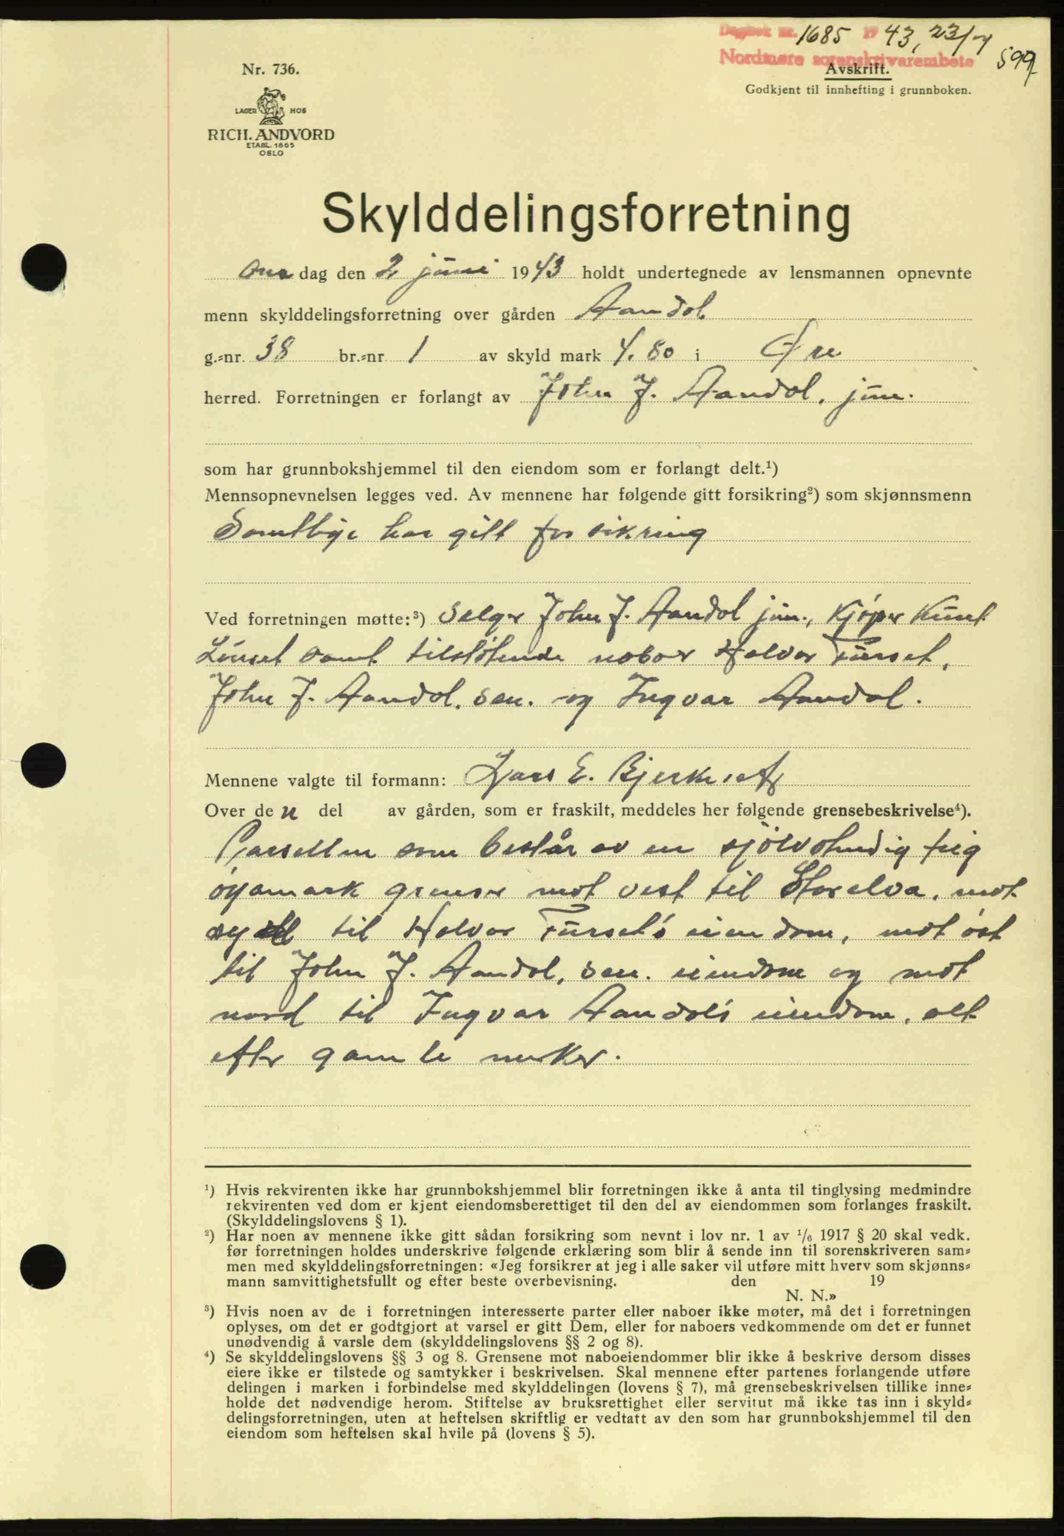 Dagbok nr. 1685 1943, 23/7
Nordmøre sorenskrivarembete
599
Nr. 736.
Avskrift.
Godkjent til innhefting i grunnboken.
LAGER HOS
RICH. ANDVORD
ETABL. 1865
OSLO
Skylddelingsforretning
Ons dag den 2 juni 1943 holdt undertegnede av lensmannen opnevnte
menn skylddelingsforretning over gården Aandal
g.=nr. 38 br.=nr 1 av skyld mark 4.80 i Øre
herred. Forretningen er forlangt av John J. Aandal, jun.
som har grunnbokshjemmel til den eiendom som er forlangt delt.¹)
Mennsopnevnelsen legges ved. Av mennene har følgende gitt forsikring²) som skjønnsmenn
Samtlige har gitt forsikring
Ved forretningen møtte:³) Selger John J. Aandal jun., Kjøper Knut
Lünset samt tilstøtende naboer Halvor Fürset,
John J. Aandal, sen. og Ingvar Aandal.
Mennene valgte til formann: Lars E. Bjerkeset
Over den del av gården, som er fraskilt, meddeles her følgende grensebeskrivelse⁴).
Parsellen som består av en sjølvstendig teig
øyamark grenser mot vest til Storelva, mot
syd til Halvor Fürset's eiendom, mot øst
til John J. Aandal, sen. eiendom og mot
nord til Ingvar Aandal's eiendom, alt
efter gamle merker.
¹) Hvis rekvirenten ikke har grunnbokshjemmel blir forretningen ikke å anta til tinglysing medmindre
rekvirenten ved dom er kjent eiendomsberettiget til den del av eiendommen som forlanges fraskilt.
(Skylddelingslovens § 1).
²) Har noen av mennene ikke gitt sådan forsikring som nevnt i lov nr. 1 av 1/6 1917 § 20 skal vedk.
før forretningen holdes underskrive følgende erklæring som blir å sende inn til sorenskriveren sam=
men med skylddelingsforretningen: «Jeg forsikrer at jeg i alle saker vil utføre mitt hverv som skjønns=
mann samvittighetsfullt og efter beste overbevisning. den 19
N. N.»
³) Hvis noen av de i forretningen interesserte parter eller naboer ikke møter, må det i forretningen
oplyses, om det er godtgjort at varsel er gitt Dem, eller for naboers vedkommende om det er funnet
unødvendig å varsle dem (skylddelingslovens §§ 2 og 8).
⁴) Se skylddelingslovens §§ 3 og 8. Grensene mot naboeiendommer blir ikke å beskrive dersom disses
eiere ikke er tilstede og samtykker i beskrivelsen. Skal mennene efter partenes forlangende utføre
delingen i marken i forbindelse med skylddelingen (lovens § 7), må grensebeskrivelsen tillike inne=
holde det nødvendige herom. Stiftelse av bruksrettighet eller servitut må ikke tas inn i skyld=
delingsforretningen, uten at heftelsen skriftlig er vedtatt av den som har grunnbokshjemmel til den
eiendom som heftelsen skal hvile på (lovens § 5).